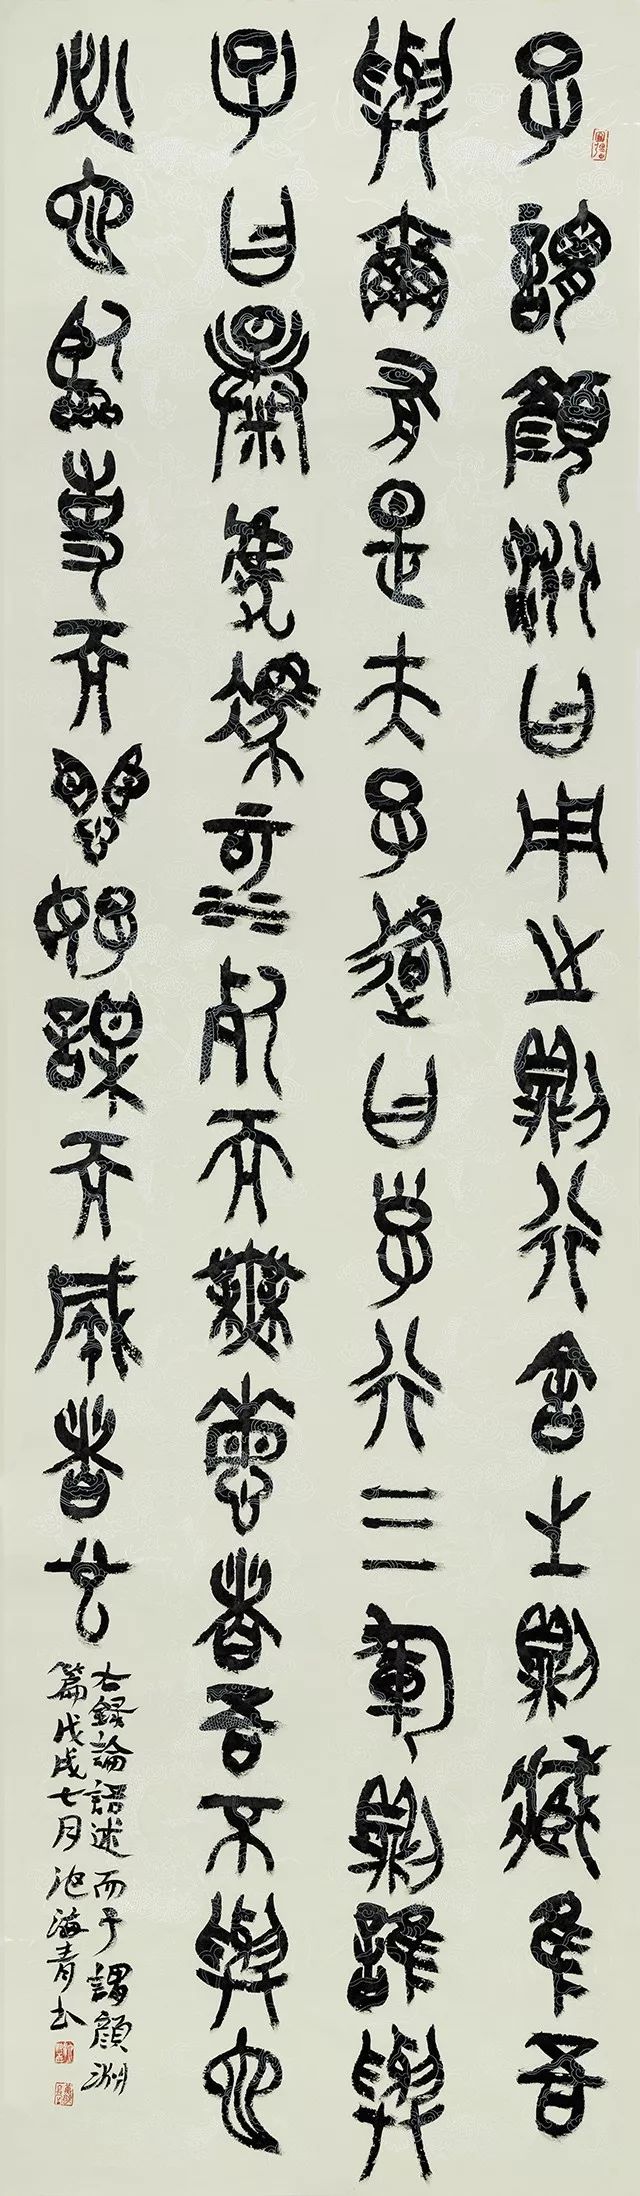 子謂顏淵曰用之則行舍之則藏隹吾
與爾有是夫子路曰子行三軍則誰與
子曰暴虎馮河死而無悔者吾不與也
必也臨事而懼好謀而成者也
右錄論語述而子謂顏淵
篇戊戌七月池海青書